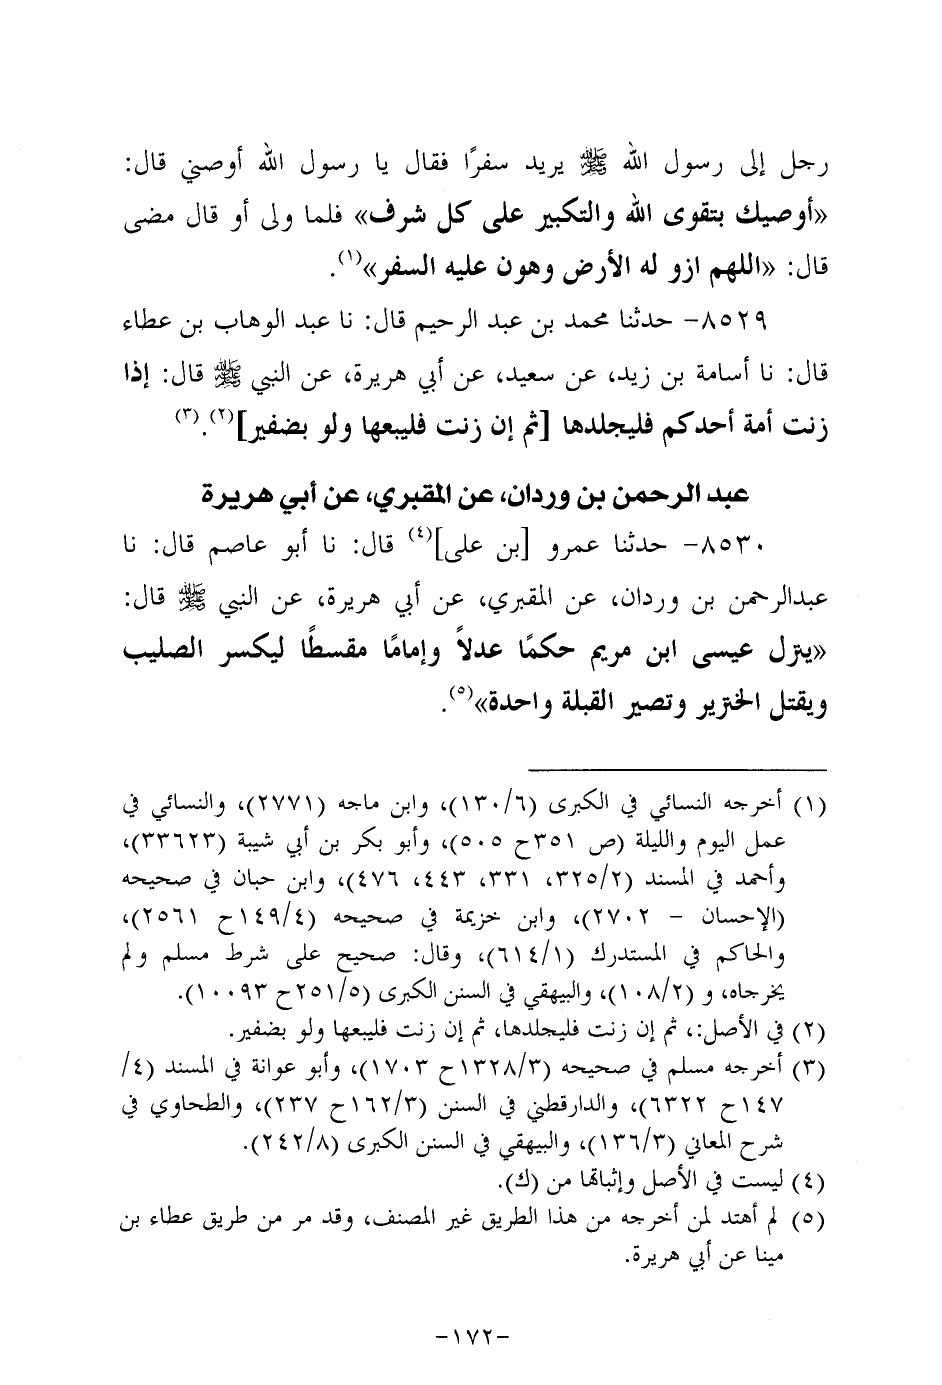 رجل إلى رسول الله ﷺ يريد سفرًا فقال يا رسول الله أوصني قال:
«أوصيك بتقوى الله والتكبير على كل شرف» فلما ولى أو قال مضى
قال: «اللهم ازو له الأرض وهون عليه السفر»(١).
٨٥٢٩- حدثنا محمد بن عبد الرحيم قال: نا عبد الوهاب بن عطاء
قال: نا أسامة بن زيد، عن سعيد، عن أبي هريرة، عن النبي ﷺ قال: إذا
زنت أمة أحدكم فليجلدها [ثم إن زنت فليبعها ولو بضفير](٢).(٣)
عبد الرحمن بن وردان، عن المقبري، عن أبي هريرة
٨٥٣٠- حدثنا عمرو [بن على](٤) قال: نا أبو عاصم قال: نا
عبدالرحمن بن وردان، عن المقبري، عن أبي هريرة، عن النبي ﷺ قال:
«ينزل عيسى ابن مريم حكمًا عدلاً وإمامًا مقسطًا ليكسر الصليب
ويقتل الخنزير وتصير القبلة واحدة»(٥).
(١) أخرجه النسائي في الكبرى (١٣٠/٦)، وابن ماجه (٢٧٧١)، والنسائي في
عمل اليوم والليلة (ص ٣٥١ح ٥٠٥)، وأبو بكر بن أبي شيبة (٣٣٦٢٣)،
وأحمد في المسند (٣٢٥/٢، ٣٣١، ٤٤٣، ٤٧٦)، وابن حبان في صحيحه
(الإحسان - ٢٧٠٢)، وابن خزيمة في صحيحه (١٤٩/٤ح ٢٥٦١)،
والحاكم في المستدرك (٦١٤/١)، وقال: صحيح على شرط مسلم ولم
يخرجاه، و (١٠٨/٢)، والبيهقي في السنن الكبرى (٢٥١/٥ح ١٠٠٩٣).
(٢) في الأصل:، ثم إن زنت فليجلدها، ثم إن زنت فليبعها ولو بضفير.
(٣) أخرجه مسلم في صحيحه (١٣٢٨/٣ح ١٧٠٣)، وأبو عوانة في المسند (٤/
١٤٧ح ٦٣٢٢)، والدارقطني في السنن (١٦٢/٣ح ٢٣٧)، والطحاوي في
شرح المعاني (١٣٦/٣)، والبيهقي في السنن الكبرى (٢٤٢/٨).
(٤) ليست في الأصل وإثباتها من (ك).
(٥) لم أهتد لمن أخرجه من هذا الطريق غير المصنف، وقد مر من طريق عطاء بن
مينا عن أبي هريرة.
-١٧٢-